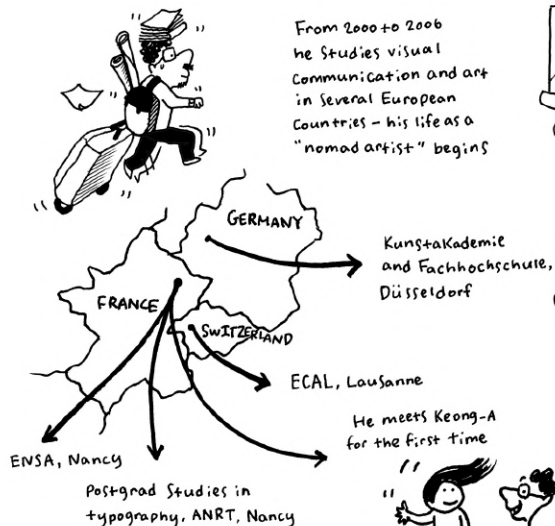 From 2000 to 2006
he studies visual
communication and art
in several European
Countries – his life as a
"nomad artist" begins
GERMANY
Kunstakademie
and Fachhochschule,
Düsseldorf
FRANCE
SWITZERLAND
ECAL, Lausanne
He meets Keong-A
for the first time
ENSA, Nancy
Postgrad Studies in
typography, ANRT, Nancy